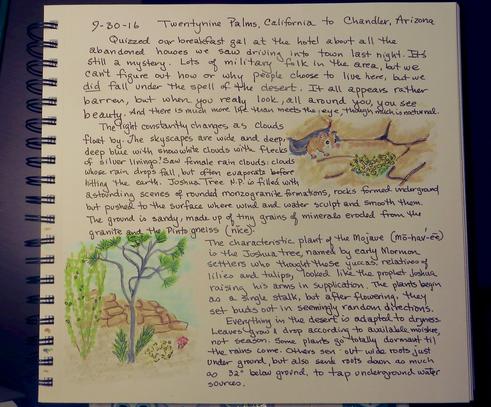 9-30-16 Twentynine Palms, California to Chandler, Arizona
Quizzed our breakfast gal at the hotel about all the
abandoned houses we saw driving into town last night. It's
still a mystery. Lots of military folk in the area, but we
can't figure out how or why people choose to live here, but we
did fall under the spell of the desert. It all appears rather
barren, but when you really look, all around you, you see
beauty. And there is much more life than meets the eye, though much is nocturnal.
The light constantly changes as clouds
float by. The skyscapes are wide and deep,
deep blue with snow white clouds with flecks
of silver linings. Saw female rain clouds: clouds
whose rain drops fall, but often evaporate before
hitting the earth. Joshua Tree N.P. is filled with
astounding scenes of rounded monzogranite formations, rocks formed underground
but pushed to the surface where wind and water sculpt and smooth them.
The ground is sandy, made up of tiny grains of minerals eroded from the
granite and the Pinto gneiss (nice).
The characteristic plant of the Mojave (mō-hav-ēē)
is the Joshua tree, named by early Mormon
settlers who thought these yuccas, relatives of
lilies and tulips, looked like the prophet Joshua
raising his arms in supplication. The plants begin
as a single stalk, but after flowering, they
set buds out in seemingly random directions.
Everything in the desert is adapted to dryness.
Leaves grow & drop according to available moisture,
not season. Some plants go totally dormant til
the rains come. Others sen out wide roots just
under ground, but also send roots down as much
as 32" below ground, to tap underground water
sources.